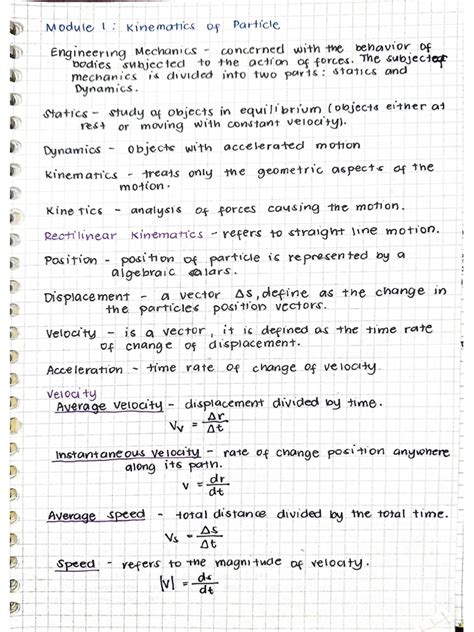 Module 1: Kinematics of Particle
Engineering Mechanics - concerned with the behavior of
bodies subjected to the action of forces. The subject of
mechanics is divided into two parts: statics and
Dynamics.
Statics - study of objects in equilibrium (objects either at
rest or moving with constant velocity).
Dynamics - objects with accelerated motion
Kinematics - treats only the geometric aspects of the
motion.
Kinetics - analysis of forces causing the motion.
Rectilinear Kinematics - refers to straight line motion.
Position - position of particle is represented by a
algebraic calars.
Displacement - a vector Δs, define as the change in
the particles position vectors.
Velocity - is a vector, it is defined as the time rate
of change of displacement.
Acceleration - time rate of change of velocity.
Velocity
Average Velocity - displacement divided by time.
Vv = Δr/Δt
Instantaneous velocity - rate of change position anywhere
along its path.
v = dr/dt
Average speed - total distance divided by the total time.
Vs = Δs/Δt
Speed - refers to the magnitude of velocity.
|v| = ds/dt